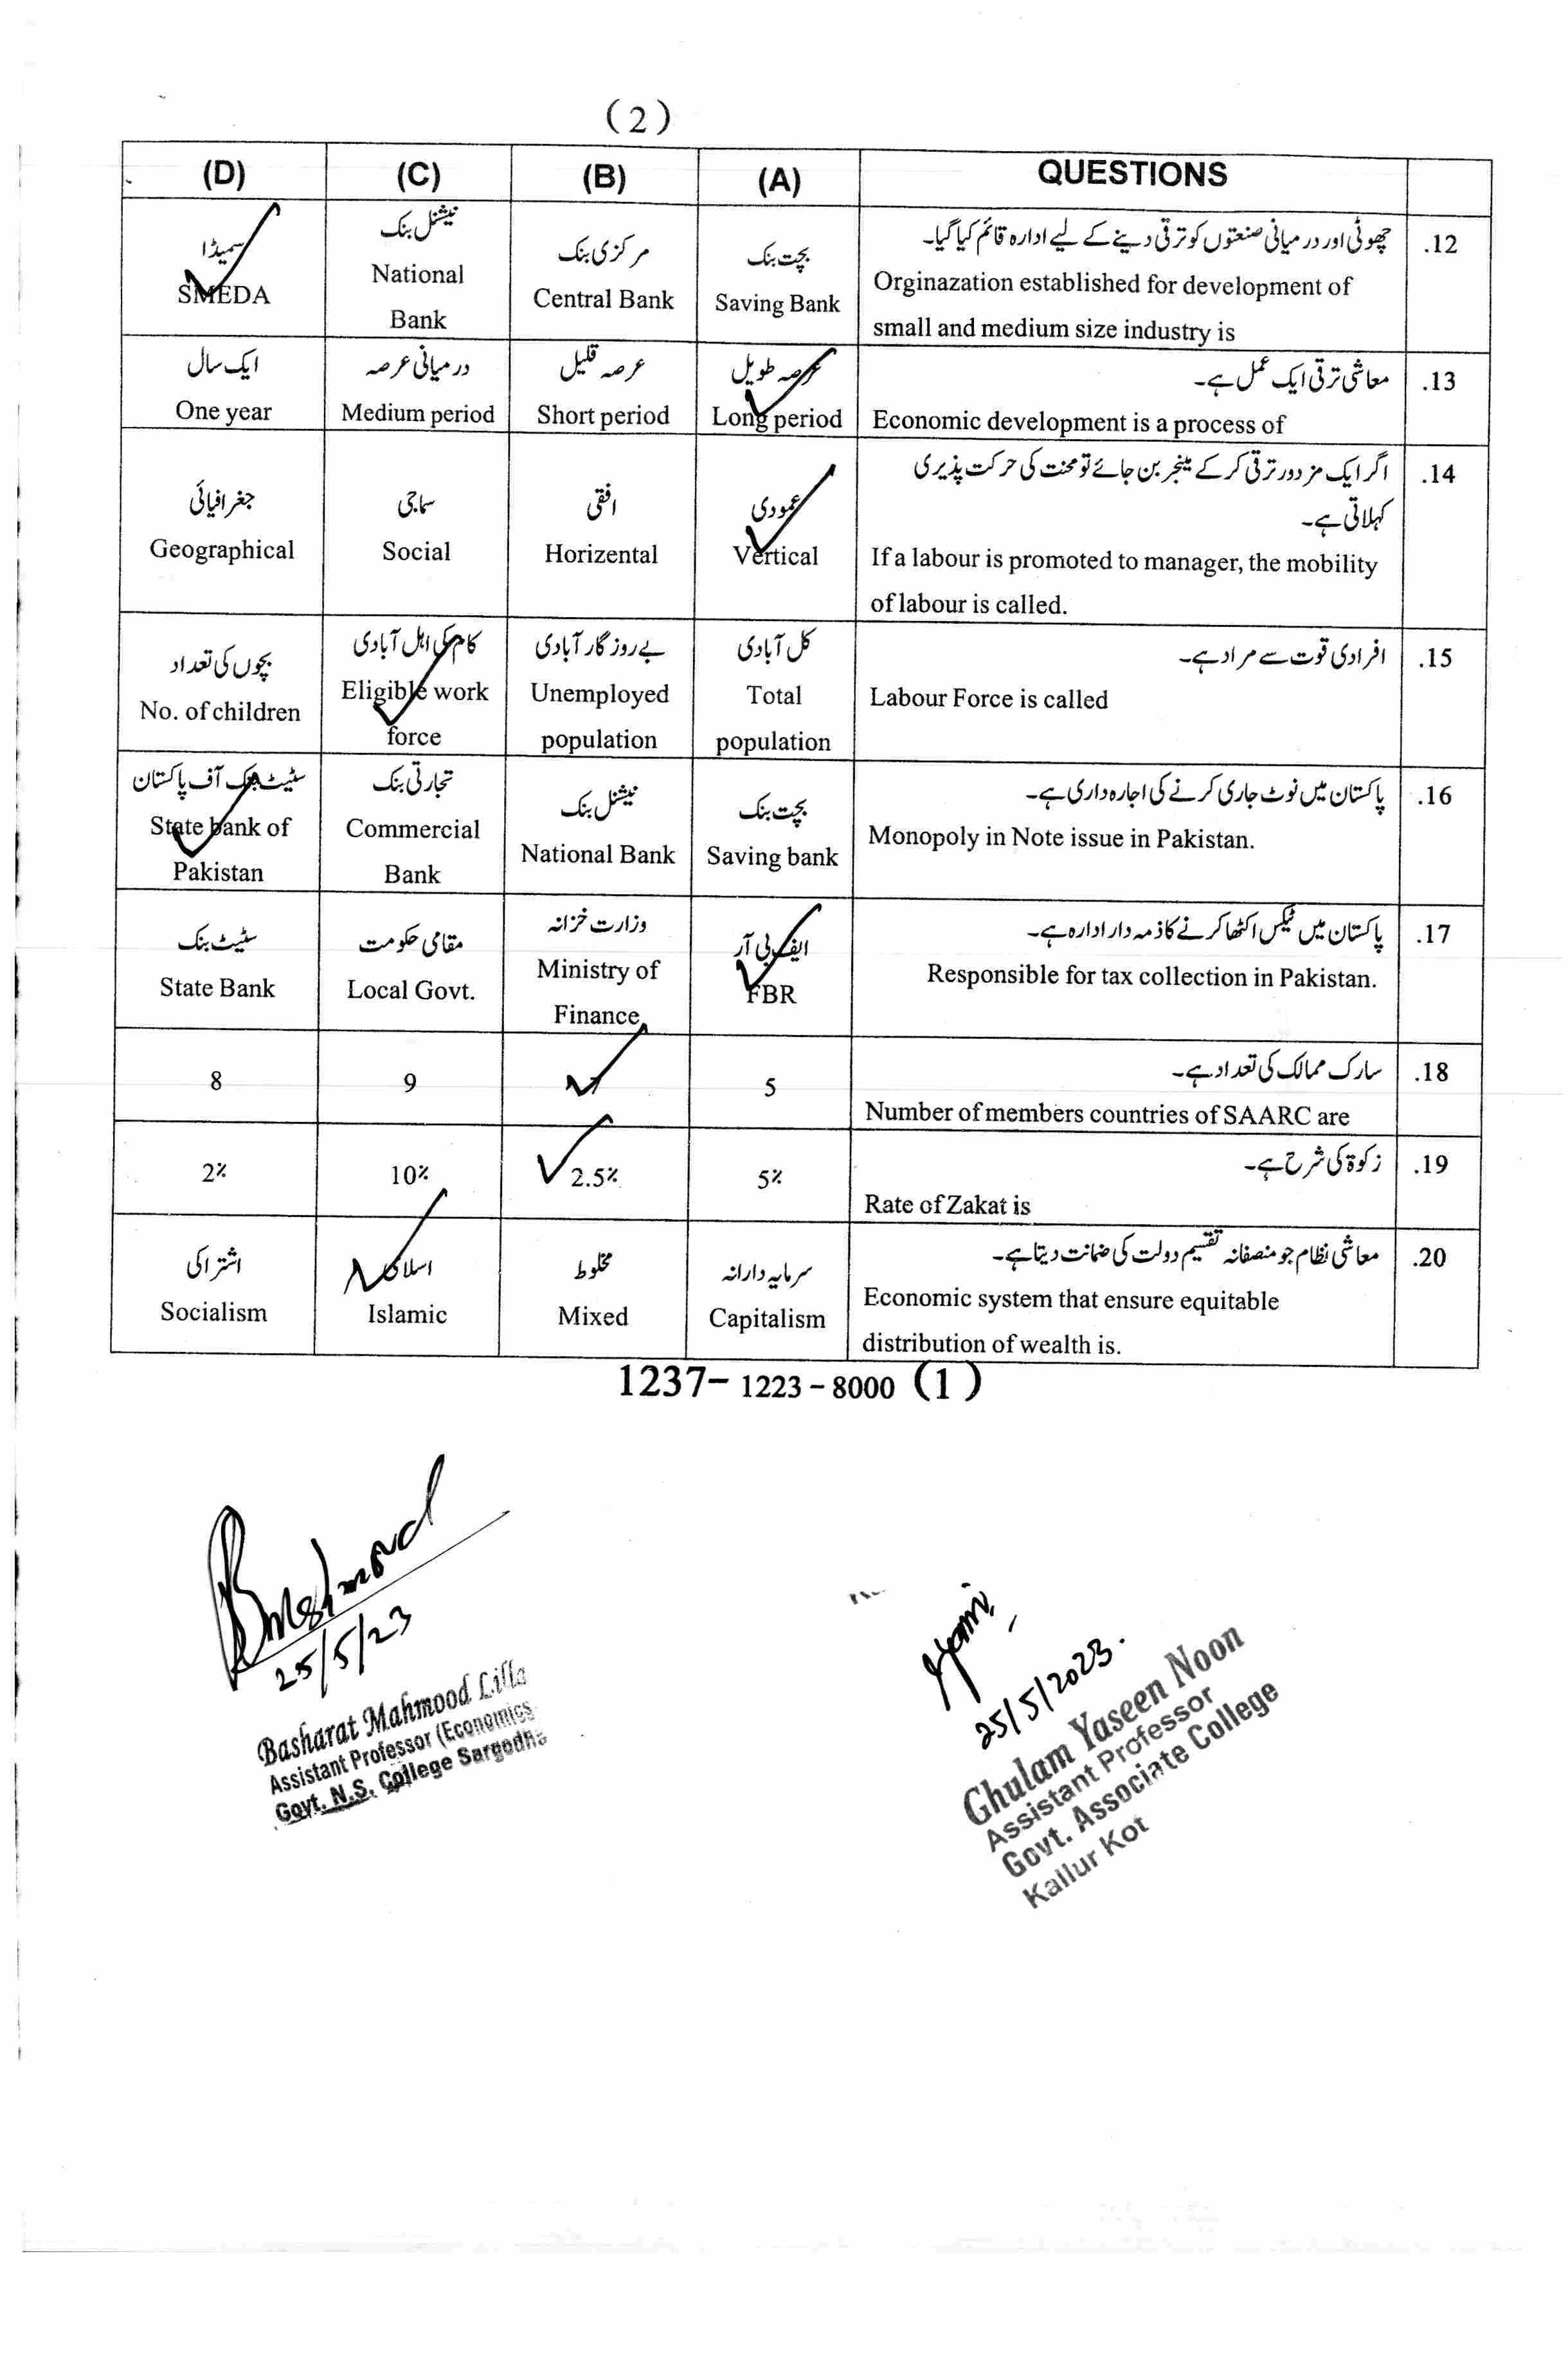 (2)
(D) (C) (B) (A) QUESTIONS
.12 چھوٹی اور درمیانی صنعتوں کو ترقی دینے کے لیے ادارہ قائم کیا گیا۔
Orginazation established for development of
small and medium size industry is
بچت بنک
Saving Bank
مرکزی بنک
Central Bank
نیشنل بنک
National
Bank
سمیڈا
SMEDA
.13 معاشی ترقی ایک عمل ہے۔
Economic development is a process of
عرصہ طویل
Long period
عرصہ قلیل
Short period
درمیانی عرصہ
Medium period
ایک سال
One year
.14 اگر ایک مزدور ترقی کر کے مینجر بن جائے تو محنت کی حرکت پذیری
کہلاتی ہے۔
If a labour is promoted to manager, the mobility
of labour is called.
عمودی
Vertical
افقی
Horizental
سماجی
Social
جغرافیائی
Geographical
.15 افرادی قوت سے مراد ہے۔
Labour Force is called
کل آبادی
Total
population
بے روزگار آبادی
Unemployed
population
کام کی اہل آبادی
Eligible work
force
بچوں کی تعداد
No. of children
.16 پاکستان میں نوٹ جاری کرنے کی اجارہ داری ہے۔
Monopoly in Note issue in Pakistan.
بچت بنک
Saving bank
نیشنل بنک
National Bank
تجارتی بنک
Commercial
Bank
سٹیٹ بنک آف پاکستان
State bank of
Pakistan
.17 پاکستان میں ٹیکس اکٹھا کرنے کا ذمہ دار ادارہ ہے۔
Responsible for tax collection in Pakistan.
ایف بی آر
FBR
وزارت خزانہ
Ministry of
Finance
مقامی حکومت
Local Govt.
سٹیٹ بنک
State Bank
.18 سارک ممالک کی تعداد ہے۔
Number of members countries of SAARC are
5
7
9
8
.19 زکوٰۃ کی شرح ہے۔
Rate of Zakat is
5%
2.5%
10%
2%
.20 معاشی نظام جو منصفانہ تقسیم دولت کی ضمانت دیتا ہے۔
Economic system that ensure equitable
distribution of wealth is.
سرمایہ دارانہ
Capitalism
مخلوط
Mixed
اسلامی
Islamic
اشتراکی
Socialism
1237- 1223 - 8000 (1)
25/5/23
Basharat Mahmood Lilla
Assistant Professor (Economics
Govt. N.S. College Sargodha
25/5/2023.
Ghulam Yaseen Noon
Assistant Professor
Govt. Associate College
Kallur Kot